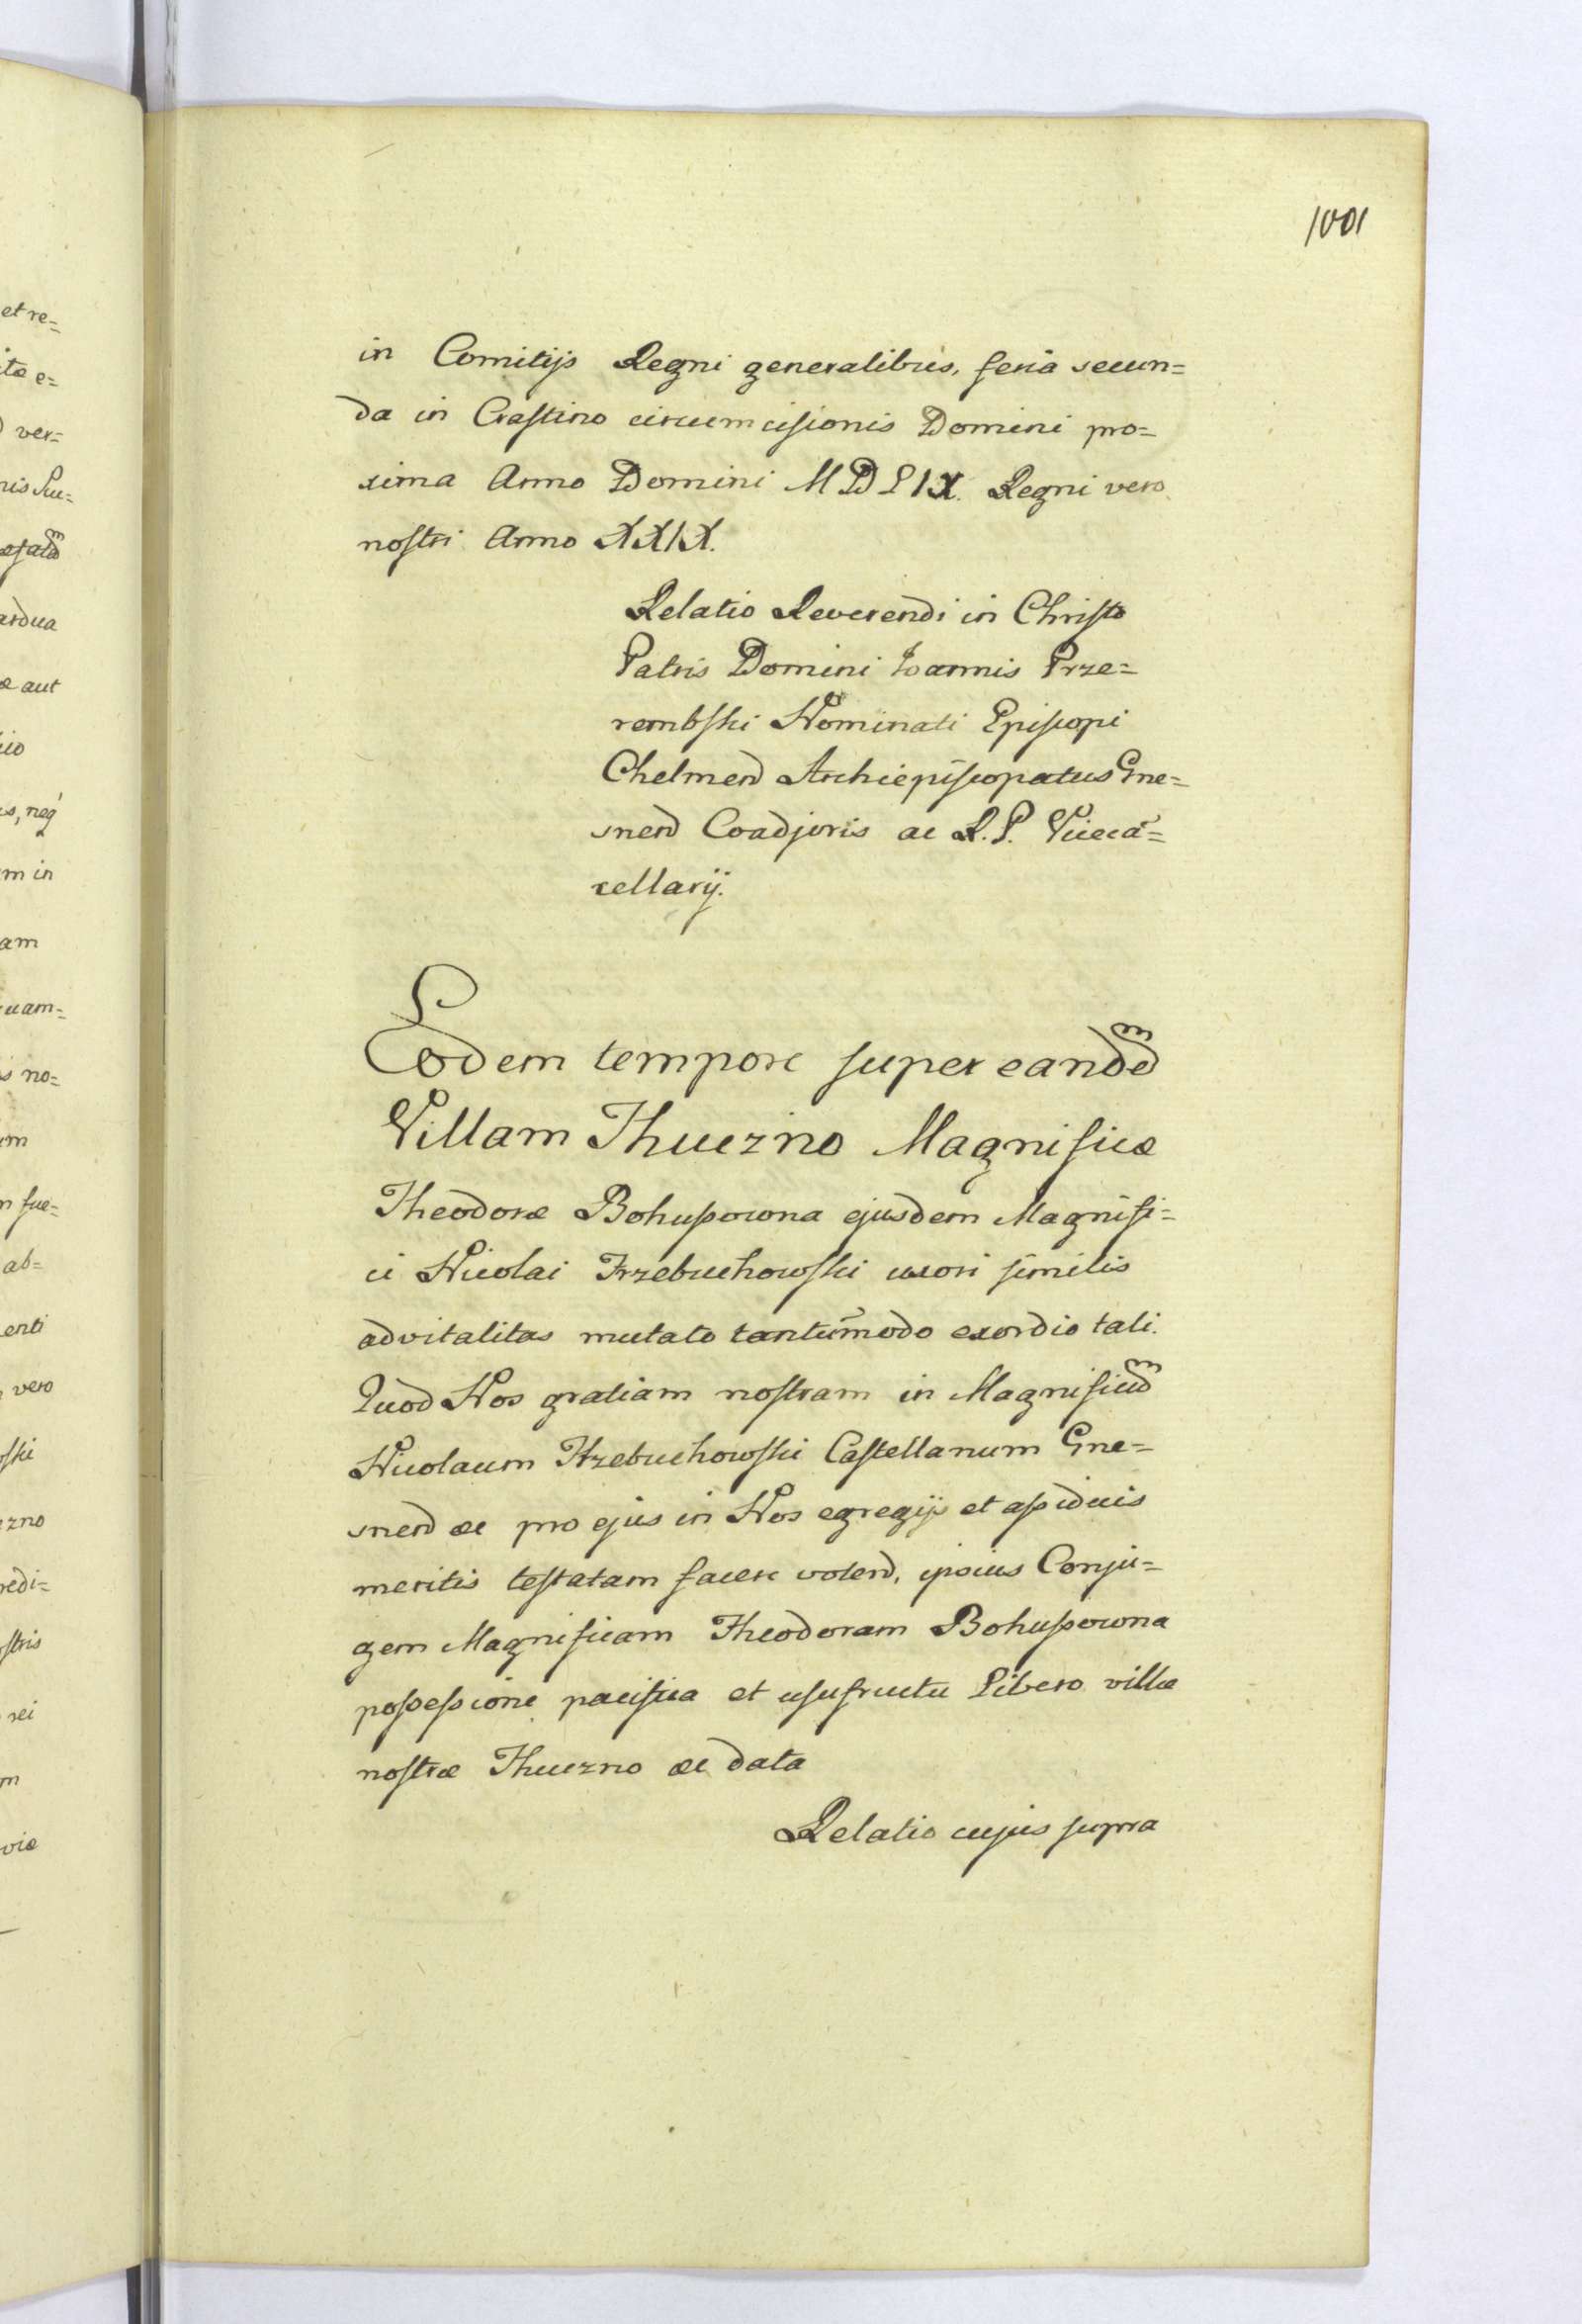 1001
in Comitijs Regni generalibus, feria secun=
da in Crastino circumcisionis Domini pro=
xima Anno Domini MDLIX. Regni vero
nostri Anno XXIX.
Relatio Reverendi in Christo
Patris Domini Joannis Prze=
rembski Nominati Episcopi
Chelmen Archiepiscopatus Gne=
snen Coadjoris ac R.P. Vicecã=
cellarij.
Eodem tempore super eandem
Villam Thuczno Magnificæ
Theodoræ Bohuszowna ejusdem Magnifi=
ci Nicolai Trzebuchowski uxori similis
advitalitas mutato tantũmodo exordio tali.
Quod Nos gratiam nostram in Magnificum
Nicolaum Trzebuchowski Castellanum Gne=
snen ac pro ejus in Nos egregijs et assiduis
meritis testatam facere volen, ipsius Conju=
gem Magnificam Theodoram Bohuszowna
possessione pacifica et usufructu libero villæ
nostræ Thuczno ac data
Relatio cujus supra
et re=
ver=
ardua
æ aut
m in
am
uam=
s no=
um
n fue=
ab=
enti
vero
ski
zno
redi=
stris
rei
m
viæ